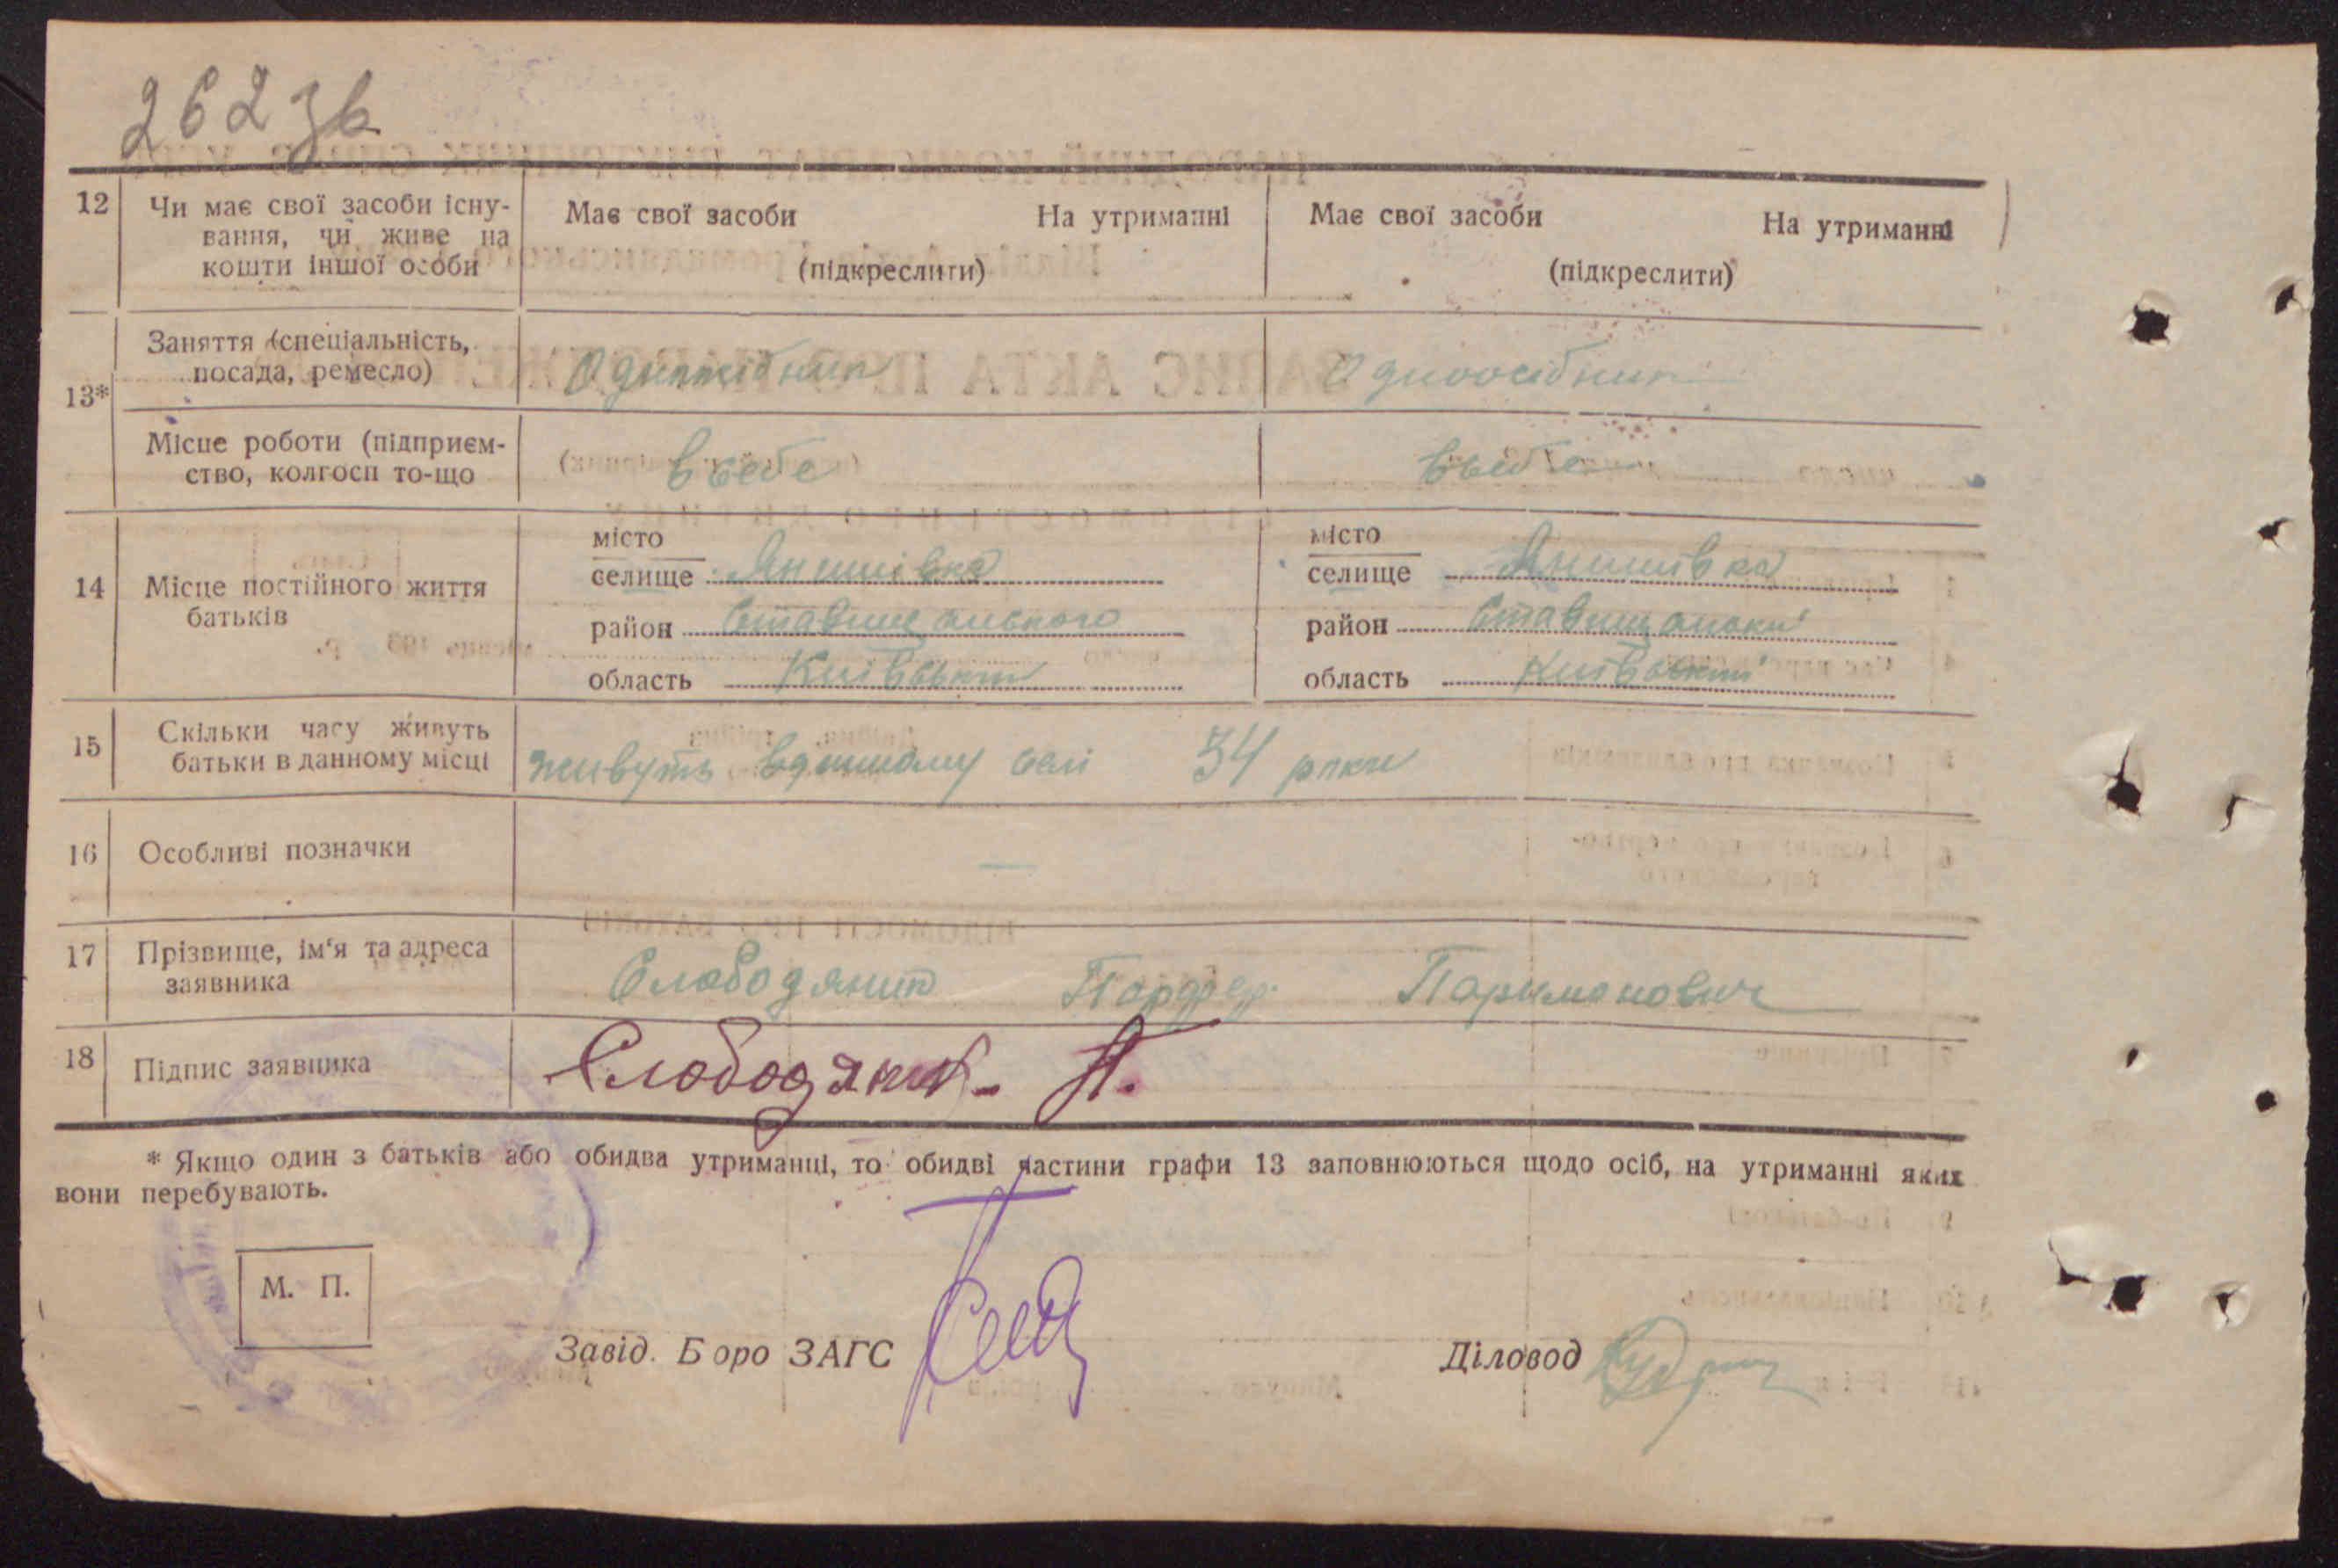 262 зв
12 Чи має свої засоби існу- Має свої засоби На утриманні Має свої засоби На утриманні
вання, чи живе на
кошти іншої особи (підкреслити) (підкреслити)
Заняття (спеціальність, Одноосібник Одноосібник
посада, ремесло)
13*
Місце роботи (підприєм- в себе в себе
ство, колгосп то-що
місто місто
14 Місце постійного життя селище Янишівка селище Янишівка
батьків район Ставищанського район
область область
15 Скільки часу живуть
батьки в данному місці живуть селі 34 роки
16 Особливі позначки —
17 Прізвище, ім'я та адреса Слободяник
заявника
18 Підпис заявника Слободяник П.
* Якщо один з батьків або обидва утриманці, то обидві частини графи 13 заповнюються щодо осіб, на утриманні яких
вони перебувають.
М. П.
Завід. Бюро ЗАГС Діловод